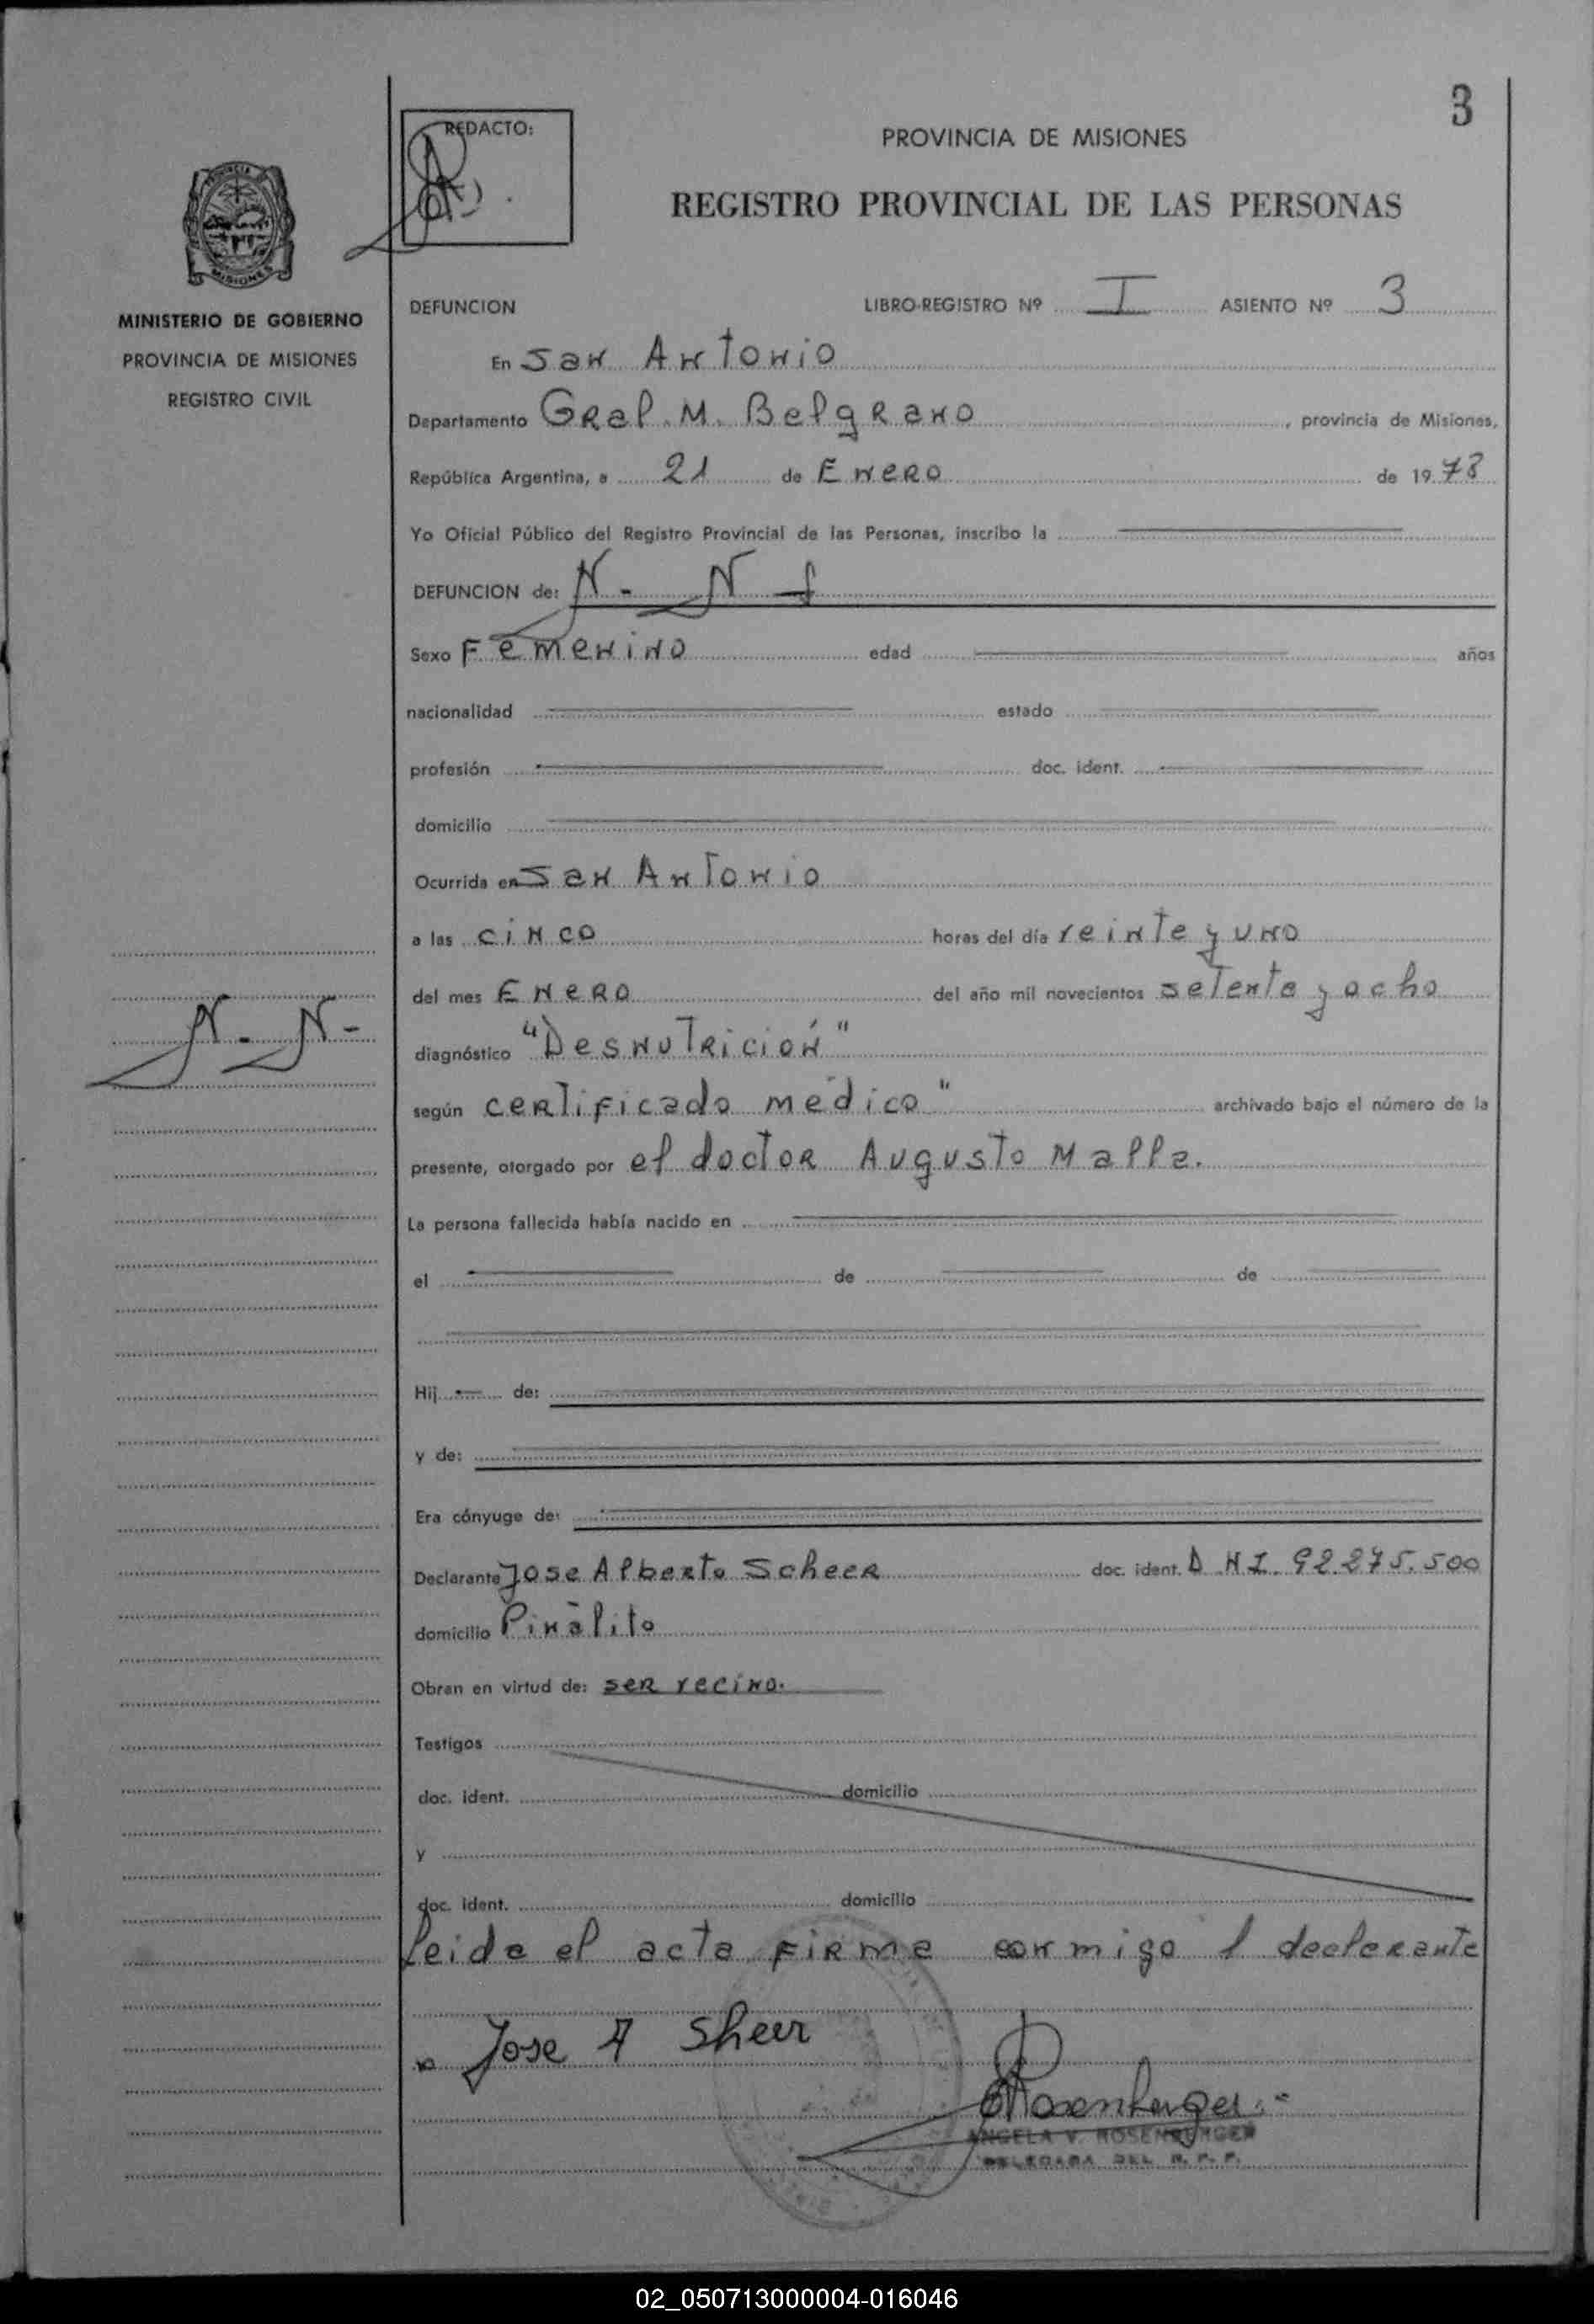 3
REDACTO:
PROVINCIA DE MISIONES
REGISTRO PROVINCIAL DE LAS PERSONAS
MISIONES
MINISTERIO DE GOBIERNO
PROVINCIA DE MISIONES
REGISTRO CIVIL
DEFUNCION LIBRO-REGISTRO Nº I ASIENTO Nº 3
En San Antonio
Departamento Gral. M. Belgrano, provincia de Misiones,
República Argentina, a 21 de Enero de 1978
Yo Oficial Público del Registro Provincial de las Personas, inscribo la
DEFUNCION de: N. N
Sexo Femenino edad años
nacionalidad estado
profesión doc. ident.
domicilio
Ocurrida en San Antonio
a las cinco horas del día veinte y uno
del mes Enero del año mil novecientos setenta y ocho
N. N-
diagnóstico "Desnutrición"
según certificado médico" archivado bajo el número de la
presente, otorgado por el doctor Augusto Malla.
La persona fallecida había nacido en
el de de
Hij de:
y de:
Era cónyuge de:
Declarante Jose Alberto Scheer doc. ident. D.N.I. 92.275.500
domicilio Pinalito
Obran en virtud de: ser vecino.
Testigos
doc. ident. domicilio
y
doc. ident. domicilio
Leida el acta firma conmigo l declarante
Jose A Sheer
Rosenberger
ANGELA V. ROSENBERGER
DELEGADA DEL R. P. P.
02_050713000004-016046